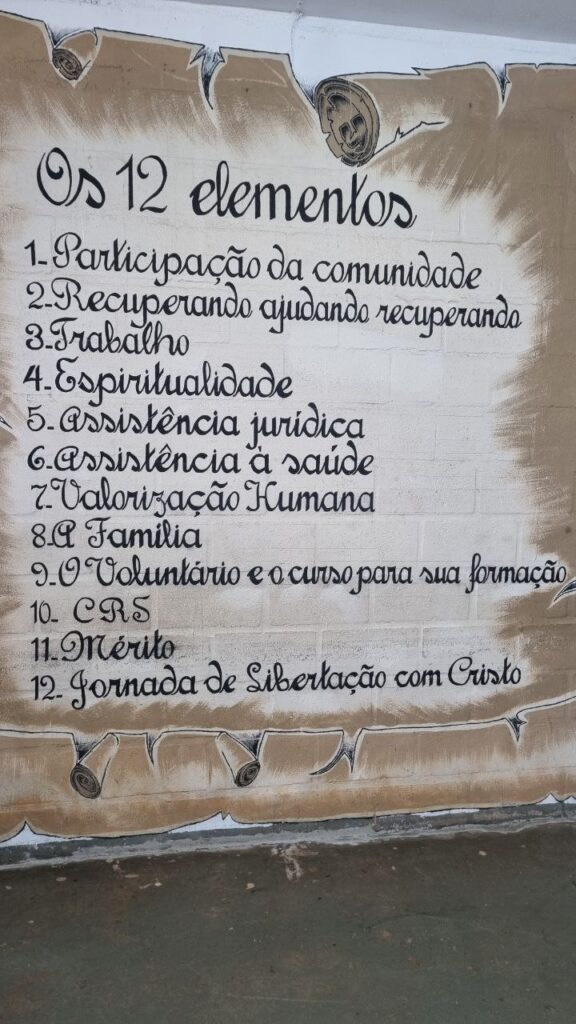 Os 12 elementos
1- Participação da comunidade
2- Recuperando ajudando recuperando
3- Trabalho
4- Espiritualidade
5- Assistência jurídica
6- Assistência à saúde
7- Valorização Humana
8- A Família
9- O Voluntário e o curso para sua formação
10- CRS
11- Mérito
12- Jornada de Libertação com Cristo